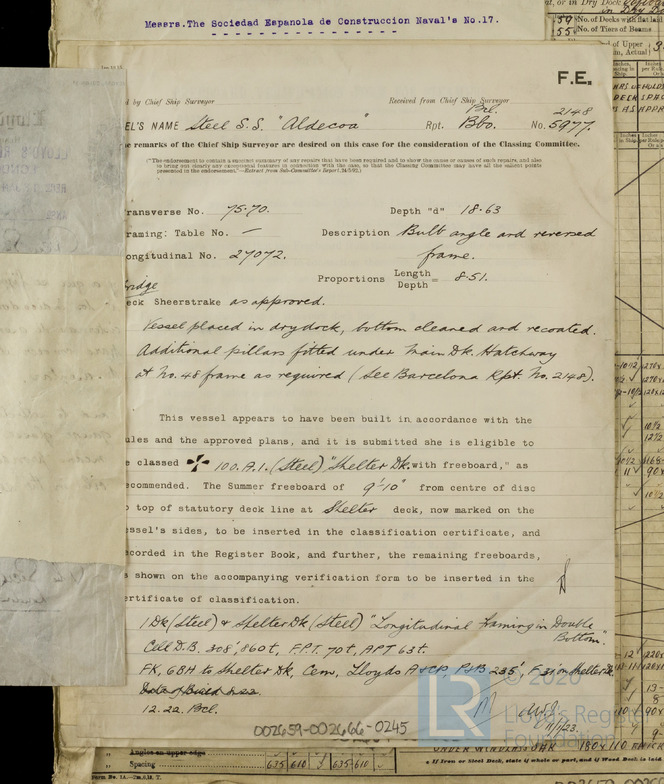 Messrs. The Sociedad Espanola de Construccion Naval's No.17.
F.E.
d by Chief Ship Surveyor Received from Chief Ship Surveyor
Bcl. 2148
EL'S NAME Steel S.S. "Aldecoa" Rpt. Bbo. No. 5977.
e remarks of the Chief Ship Surveyor are desired on this case for the consideration of the Classing Committee.
("The endorsement to contain a succinct summary of any repairs that have been required and to show the cause or causes of such repairs, and also
to bring out clearly any exceptional features in connection with the case, in order that the Classing Committee may have all the salient points
presented in the endorsement."—Extract from Sub-Committee's Report
ransverse No. 75.70. Depth "d" 18.63
raming: Table No. — Description Bulb angle and reversed
frame.
ongitudinal No. 27072.
Proportions Length/Depth = 8.51.
ridge
eck Sheerstrake as approved.
Vessel placed in drydock, bottom cleaned and recoated.
Additional pillars fitted under Main Dk. Hatchway
at No. 48 frame as required (See Barcelona Rpt. No. 2148).
This vessel appears to have been built in accordance with the
ules and the approved plans, and it is submitted she is eligible to
e classed ✠ 100.A.1. (Steel) "Shelter Dk. with freeboard," as
ecommended. The Summer freeboard of 9'-10" from centre of disc
o top of statutory deck line at Shelter deck, now marked on the
essel's sides, to be inserted in the classification certificate, and
ecorded in the Register Book, and further, the remaining freeboards,
s shown on the accompanying verification form to be inserted in the
ertificate of classification.
1 Dk (Steel) & Shelter Dk (Steel) "Longitudinal framing in Double
Bottom".
Cell D.B. 308', 860t, F.P.T. 70t, APT 63t.
FK, 6BH to Shelter Dk, Cem, Lloyds A & CP, 235', F 31 on Shelter Dk
Date of Build
12.22. Bcl.
002659-002666-0245
© 2020
Lloyd's Register
Foundation
LR
No. of Decks with flat laid
No. of Tiers of Beams
of Upper
Angles on upper edge
Spacing 635-610 635-610
UNDER WINDLASS
If Iron or Steel Deck, state if whole or part, and if Wood Deck is laid